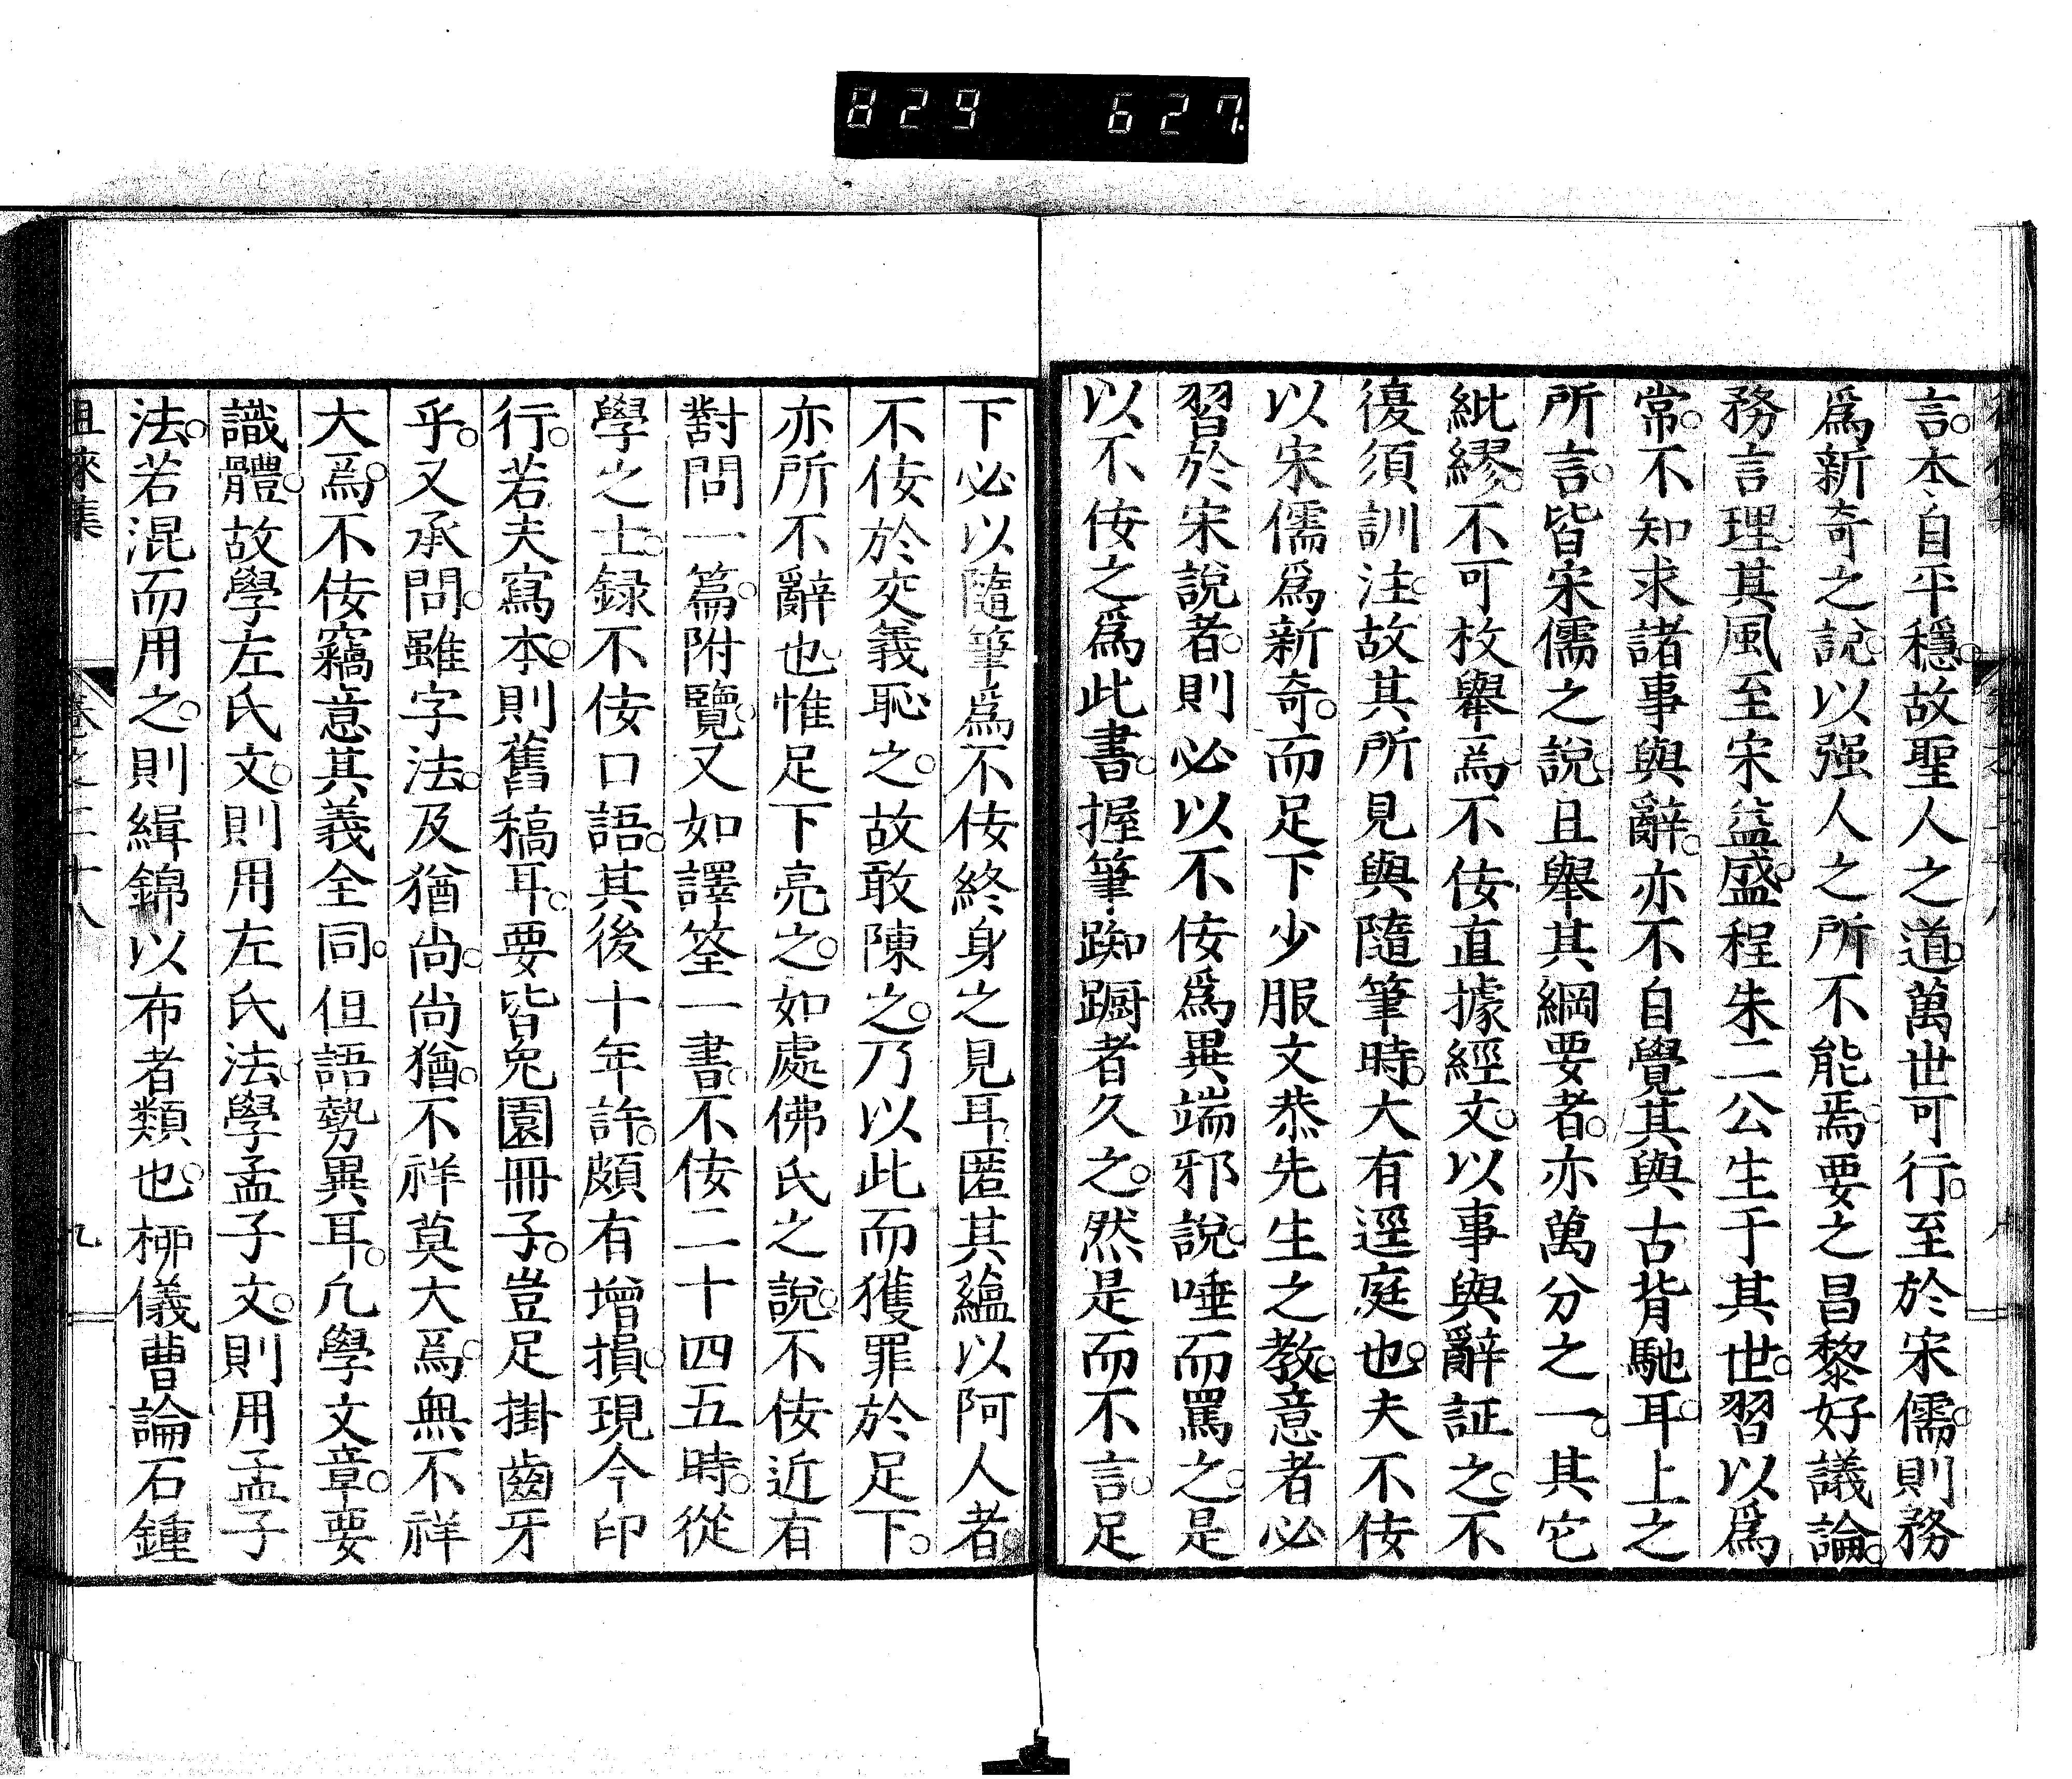 829 627
言。本自平穩。故聖人之道。萬世可行。至於宋儒。則務
爲新奇之說。以强人之所不能焉。要之昌黎好議論。
務言理。其風至宋益盛。程朱二公生于其世。習以爲
常。不知求諸事與辭。亦不自覺其與古背馳耳。上之
所言。皆宋儒之說。且舉其綱要者。亦萬分之一。其它
紕繆。不可枚舉焉。不佞直據經文。以事與辭証之。不
復須訓注。故其所見與隨筆時。大有逕庭也。夫不佞
以宋儒爲新奇。而足下少服文恭先生之教。意者必
習於宋說者。則必以不佞爲異端邪說。唾而罵之。是
以不佞之爲此書。握筆踟躕者久之。然是而不言。足
下必以隨筆爲不佞終身之見耳。匿其蘊以阿人者。
不佞於交義恥之。故敢陳之。乃以此而獲罪於足下。
亦所不辭也。惟足下亮之。如處佛氏之說。不佞近有
對問一篇。附覽。又如譯筌一書。不佞二十四五時。從
學之士。録不佞口語。其後十年許。頗有增損。現今印
行。若夫寫本。則舊稿耳。要皆兔園冊子。豈足掛齒牙
乎。又承問。雖字法。及猶尚。尚猶。不祥莫大焉。無不祥
大焉。不佞竊意其義全同。但語勢異耳。凢學文章。要
識體。故學左氏文。則用左氏法。學孟子文。則用孟子
法。若混而用之。則緝錦以布者類也。柳儀曹論石鍾
徂徠集 卷之二十八 九